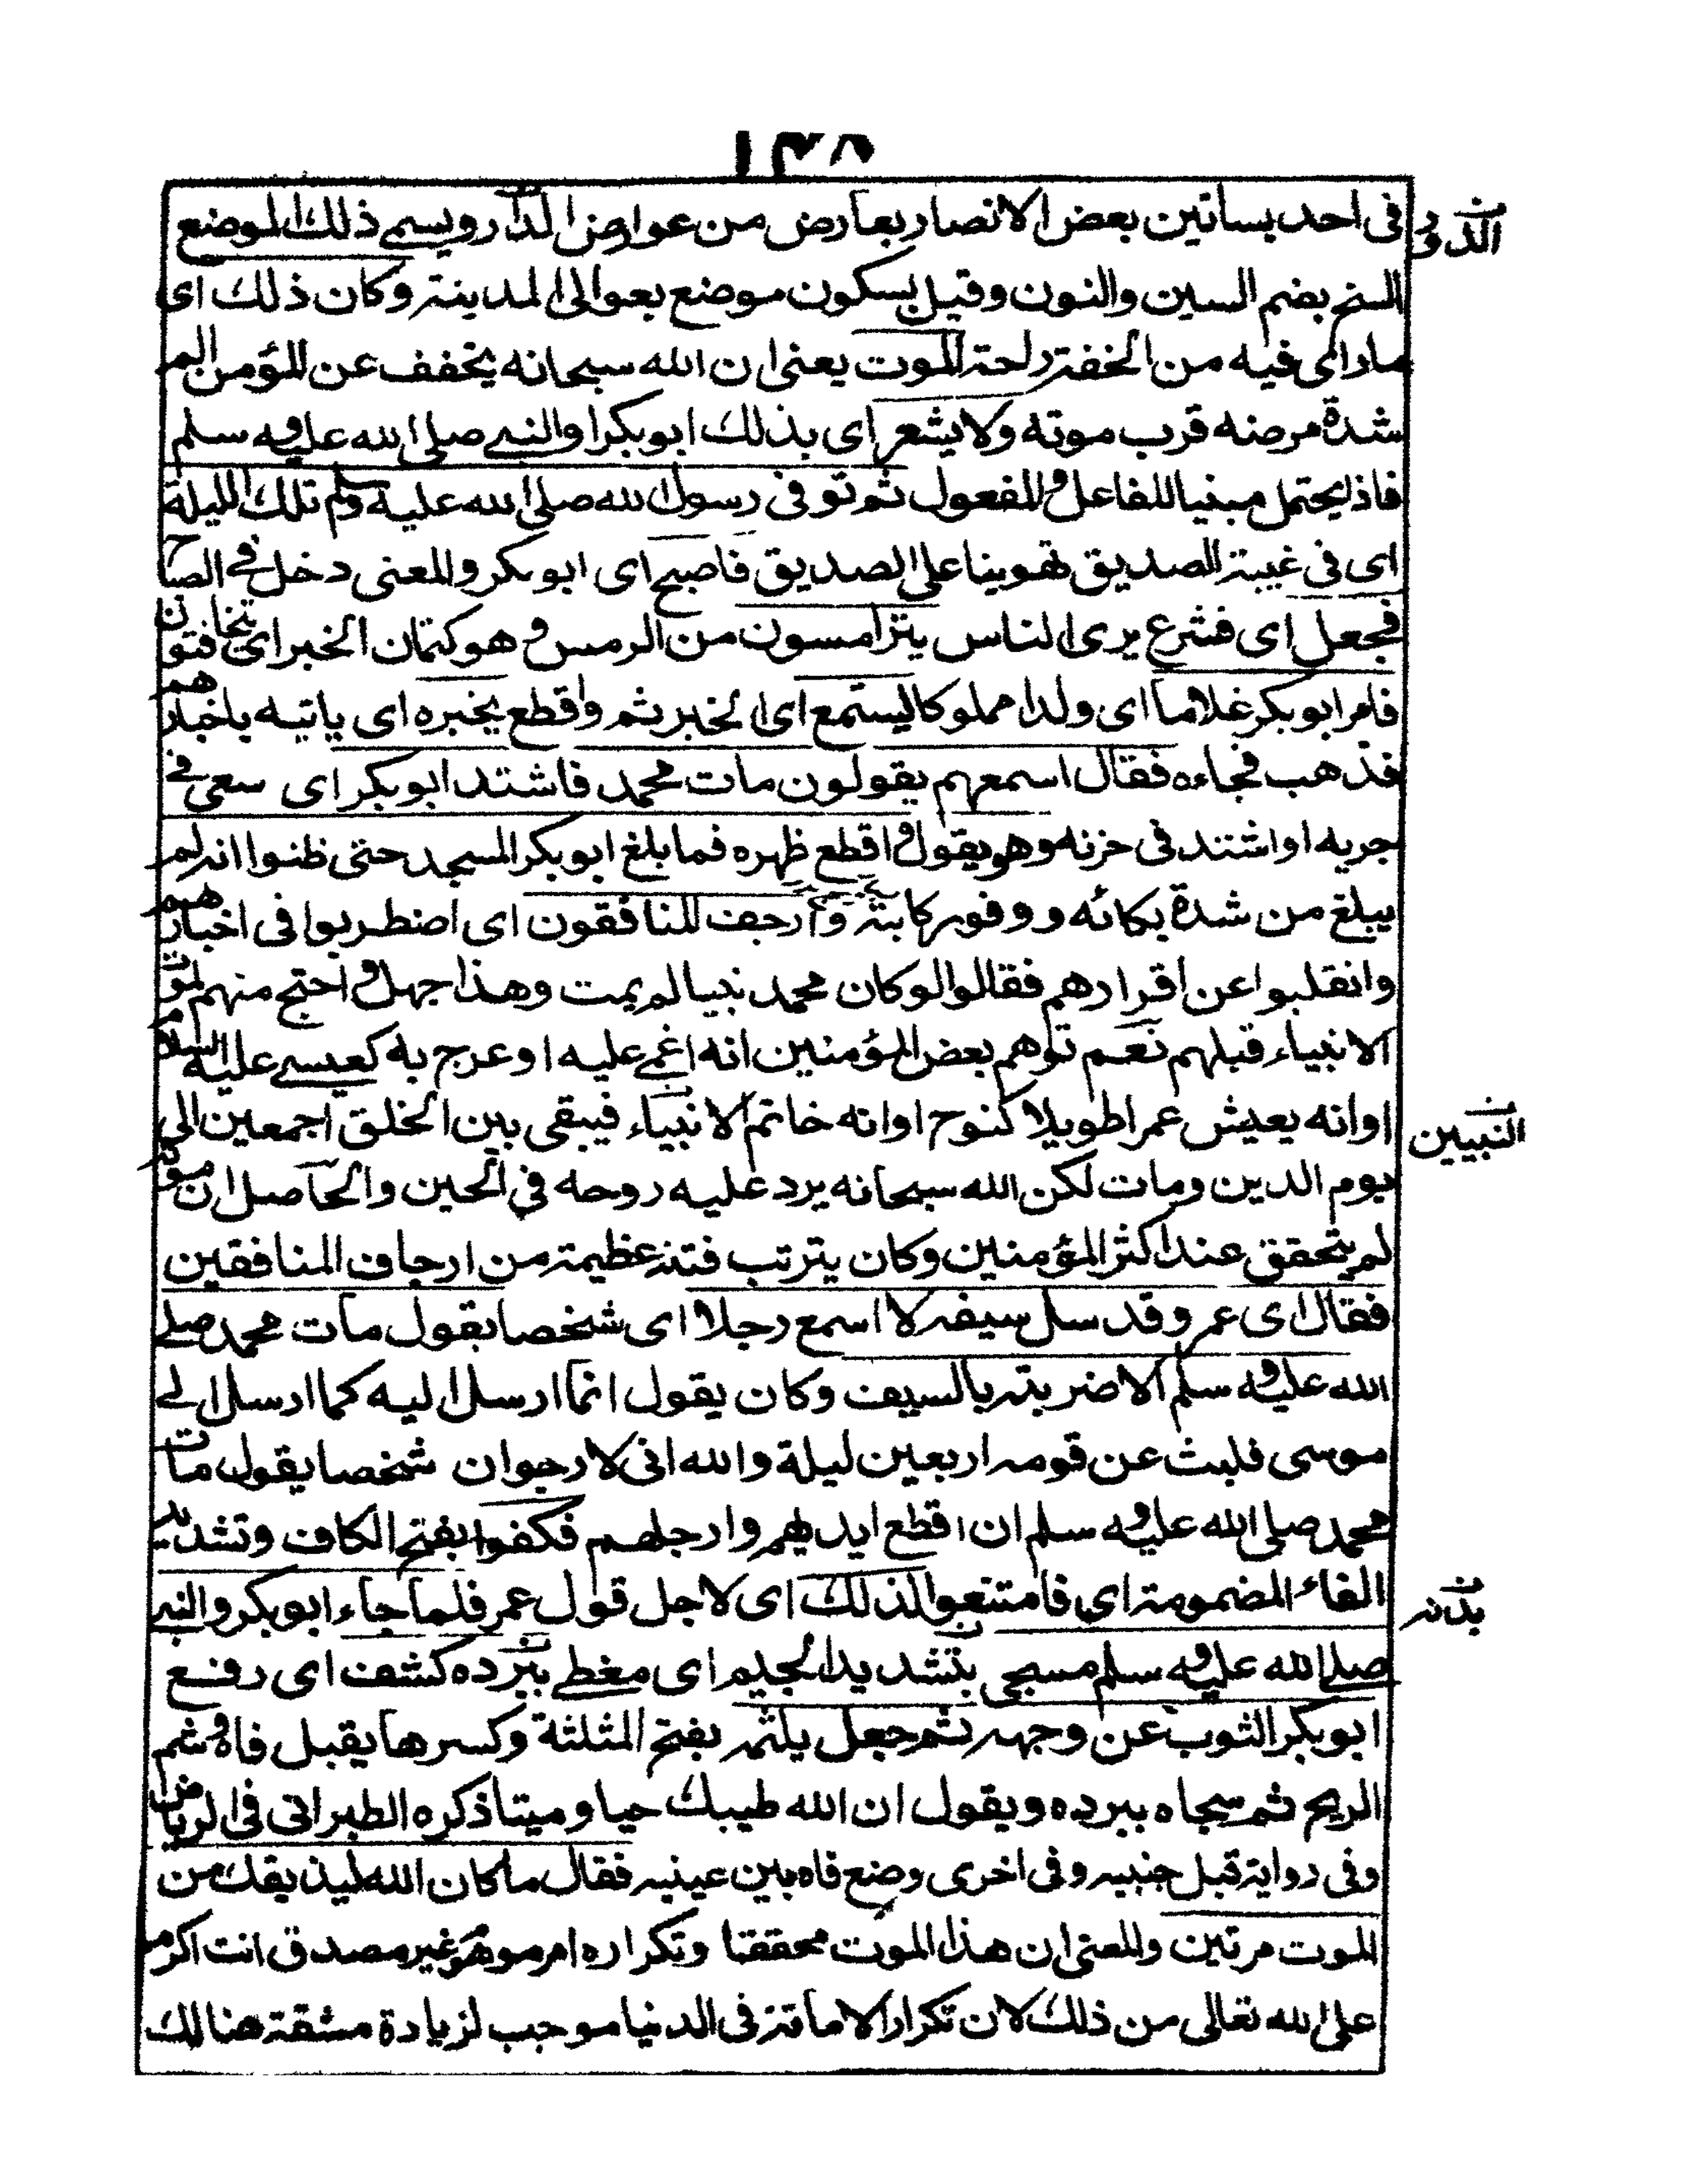 ١٣٨
فى احد بساتين بعض الانصار بعارض من عوارض الدار ويسمى ذلك الموضع
الدور
السنح بضم السين والنون وقيل بسكون موضع بعوالى المدينة وكان ذلك اى
ماراى فيه من الخفة راحة الموت يعنى ان الله سبحانه يخفف عن المؤمن الم
شدة مرضه قرب موته ولا يشعر اى بذلك ابوبكر او النبى صلى الله عليه وسلم
فاذا يحتمل مبنيا للفاعل وللمفعول ثم توفى رسول الله صلى الله عليه وسلم تلك الليلة
اى فى غيبة الصديق تهوينا على الصديق فاصبح اى ابوبكر والمعنى دخل فى الصباح
فجعل اى فشرع يرى الناس يترامسون من الرمس وهو كتمان الخبر اى يتخافتون
فامر ابوبكر غلاما اى ولدا مملوكا ليستمع اى الخبر ثم واقطع يخبره اى ياتيه باخبارهم
فذهب فجاءه فقال اسمعهم يقولون مات محمد فاشتد ابوبكر اى سعى فى
جريه او اشتد فى حزنه وهو يقول واقطع ظهره فما بلغ ابوبكر المسجد حتى ظنوا انه لم
يبلغ من شدة بكائه و وفور كابته وارجف المنافقون اى اضطربوا فى اخبارهم
وانقلبوا عن اقرارهم فقالوا لو كان محمد نبيا لم يمت وهذا جهل واحتج منهم لموت
الانبياء قبلهم نعم توهم بعض المؤمنين انه اغمى عليه او عرج به كعيسى عليه السلام
اوانه يعيش عمرا طويلا كنوح اوانه خاتم الانبياء فيبقى بين الخلق اجمعين الى
النبيين
يوم الدين ومات لكن الله سبحانه يرد عليه روحه في الحين والحاصل ان موته
لم يتحقق عند اكثر المؤمنين وكان يترتب فتنة عظيمة من ارجاف المنافقين
فقال اى عمر وقد سل سيفه لا اسمع رجلا اى شخصا يقول مات محمد صلى
الله عليه وسلم الا ضربته بالسيف وكان يقول انما ارسل اليه كما ارسل الى
موسى فلبث عن قومه اربعين ليلة والله انى لارجو ان شخصا يقول مات
محمد صلى الله عليه وسلم ان اقطع ايديهم وارجلهم فكفوا بفتح الكاف وتشديد
الفاء المضمومة اي فامتنعوا لذلك اى لاجل قول عمر فلما جاء ابوبكر والنبى
بدنه
صلى الله عليه وسلم مسجى بتشديد الجيم اى مغطى ببرده كشف اى رفع
ابوبكر الثوب عن وجهه ثم جعل يلثمه بفتح المثلثة وكسرها يقبل فاه وشم
الريح ثم سجاه ببرده ويقول ان الله طيبك حيا وميتا ذكره الطبرانى فى الرياض
وفى رواية قبل جنبيه وفى اخرى وضع فاه بين عينيه فقال ما كان الله ليذيقك من
الموت مرتين والمعنى ان هذا الموت محققا وتكراره امر موهو غير مصدق انت اكرم
على الله تعالى من ذلك لان تكرار الاماتة فى الدنيا موجب لزيادة مشقة هنالك